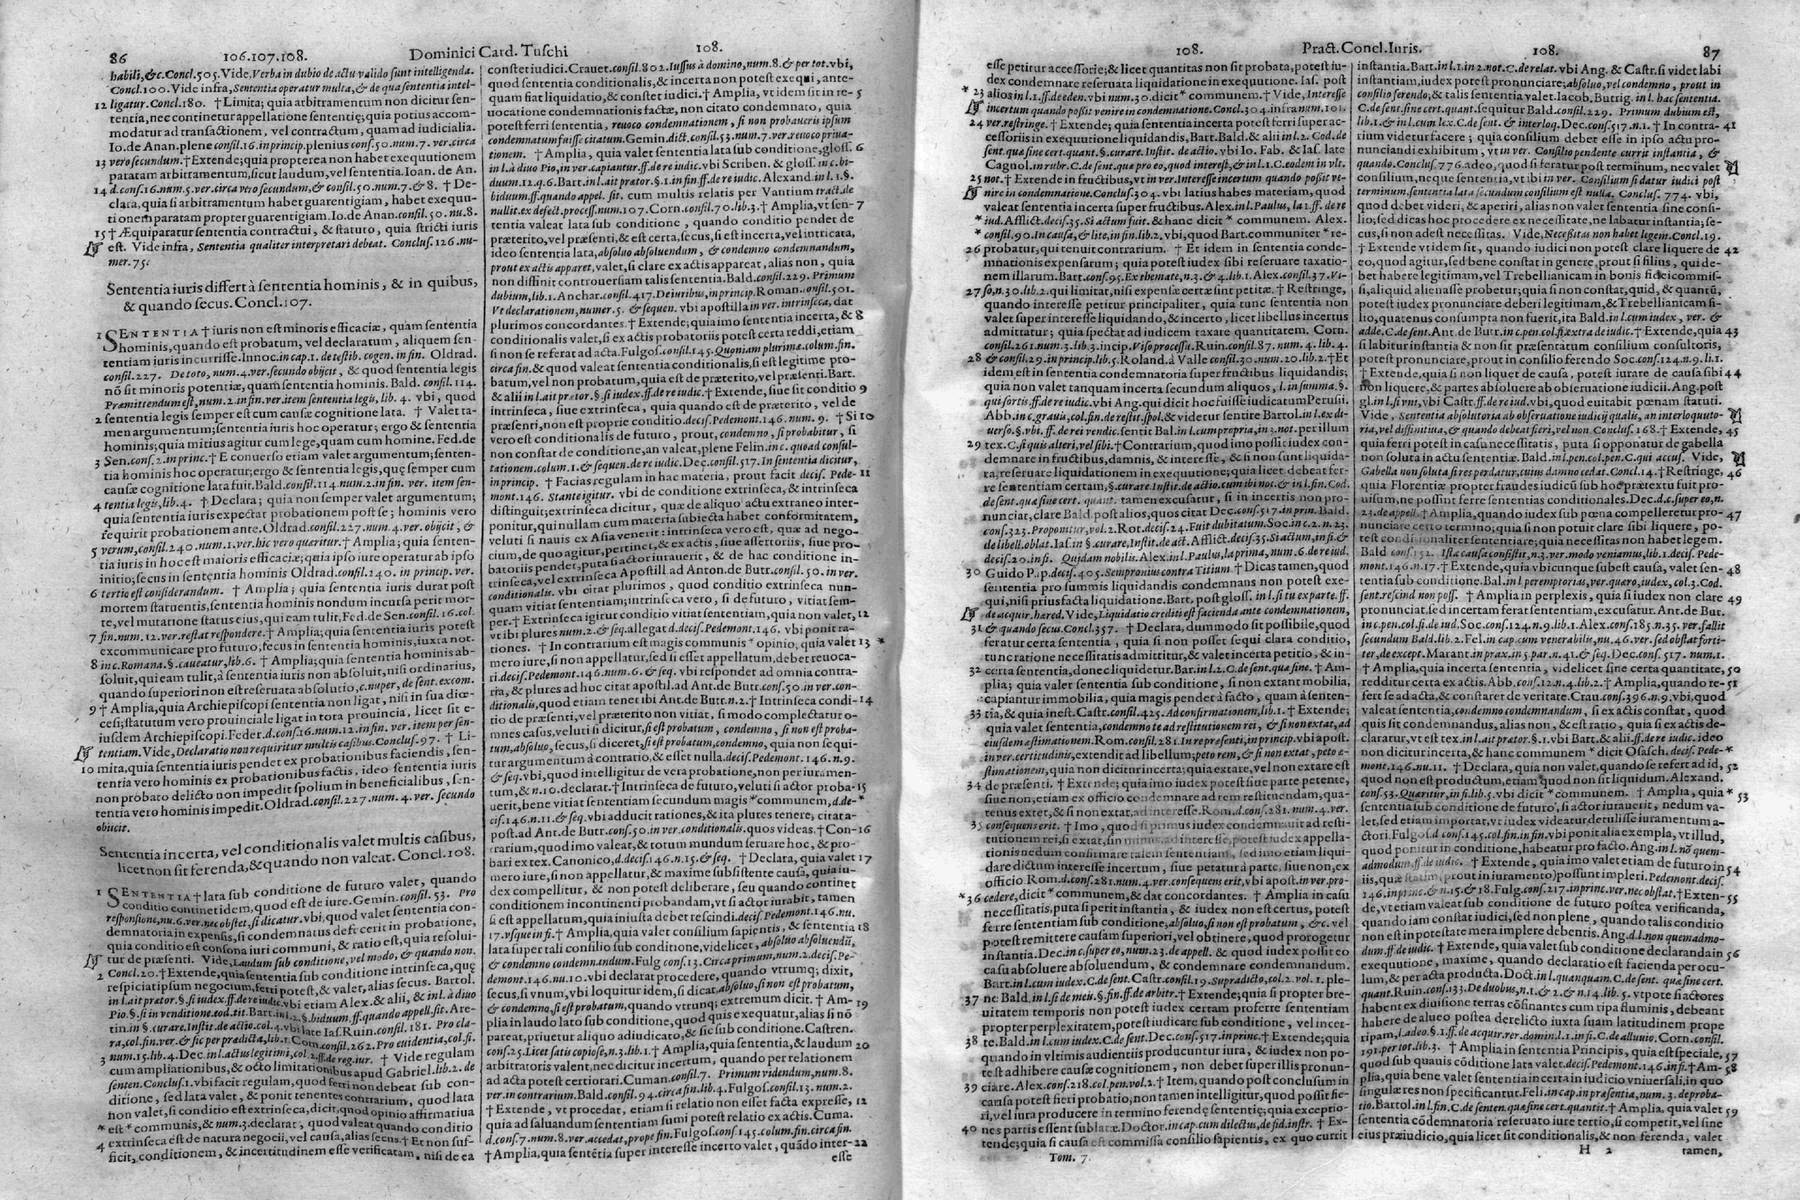 86 106.107.108. Dominici Card. Tuschi 108.
habili, &c. Concl. 505. Vide, Verba in dubio de actu valido sunt intelligenda.
Concl. 100. Vide infra, Sententia operatur multa, & de qua sententia intel-
12 ligatur. Concl. 180. † Limita; quia arbitramentum non dicitur sen-
tentia, nec continetur appellatione sententię; quia potius accom-
modatur ad transactionem, vel contractum, quam ad iudicialia.
Io. de Anan. plene consil. 16. in princip. plenius cons. 50. num. 7. ver. circa
13 vero secundum. † Extende; quia propterea non habet exequutionem
paratam arbitramentum, sicut laudum, vel sententia. Ioan. de An.
14 d. cons. 16. num. 5. ver. circa vero secundum, & consil. 50. num. 7. & 8. † De-
clara, quia si arbitramentum habet guarentigiam, habet exequu-
tionem paratam propter guarentigiam. Io. de Anan. consil. 50. nu. 8.
15 † Æquiparatur sententia contractui, & statuto, quia stricti iuris
est. Vide infra, Sententia qualiter interpretari debeat. Conclus. 126. nu-
mer. 75.
Sententia iuris differt à sententia hominis, & in quibus,
& quando secus. Concl. 107.
1 SENTENTIA † iuris non est minoris efficaciæ, quàm sententia
hominis, quando est probatum, vel declaratum, aliquem sen-
tentiam iuris incurrisse. Innoc. in cap. 1. de testib. cogen. in fin. Oldrad.
consil. 227. De toto, num. 4. ver. secundo obijcit, & quod sententia legis
nō sit minoris potentiæ, quam sententia hominis. Bald. consil. 114.
Præmittendum est, num. 2. in fin. ver. item sententia legis, lib. 4. vbi, quod
2 sententia legis semper est cum causæ cognitione lata. † Valet ta-
men argumentum; sententia iuris hoc operatur; ergo & sententia
hominis; quia mitius agitur cum lege, quam cum homine. Fed. de
3 Sen. cons. 2. in princ. † E conuerso etiam valet argumentum; senten-
tia hominis hoc operatur; ergo & sententia legis, quę semper cum
causæ cognitione lata fuit. Bald. consil. 114. num. 2. in fin. ver. item sen-
4 tentia legis, lib. 4. † Declara; quia non semper valet argumentum;
quia sententia iuris expectat probationem post se; hominis vero
requirit probationem ante. Oldrad. consil. 227. num. 4. ver. obijcit, &
5 verum, consil. 240. num. 1. ver. hic vero quæritur. † Amplia; quia senten-
tia iuris in hoc est maioris efficaciæ; quia ipso iure operatur ab ipso
initio; secus in sententia hominis Oldrad. consil. 240. in princip. ver.
6 tertio est considerandum. † Amplia; quia sententia iuris durat post
mortem statuentis, sententia hominis nondum incursa perit mor-
te, vel mutatione status eius, qui eam tulit, Fed. de Sen. consil. 16. col.
7 fin. num. 12. ver. restat respondere. † Amplia; quia sententia iuris potest
excommunicare pro futuro; secus in sententia hominis, iuxta not.
8 in c. Romana. §. caueatur, lib. 6. † Amplia; quia sententia hominis ab-
soluit, qui eam tulit, à sententia iuris non absoluit, nisi ordinarius,
quando superiori non est reseruata absolutio, c. nuper, de sent. excom.
9 † Amplia, quia Archiepiscopi sententia non ligat, nisi in sua diœ-
cesi; statutum vero prouinciale ligat in tota prouincia, licet sit e-
iusdem Archiepiscopi. Feder. d. cons. 16. num. 12. in fin. ver. item per sen-
tentiam. Vide, Declaratio non requiritur multis casibus. Conclus. 97. † Li-
10 mita, quia sententia iuris pendet ex probationibus faciendis, sen-
tentia vero hominis ex probationibus factis, ideo sententia iuris
non probato delicto non impedit spolium in beneficialibus, sen-
tentia vero hominis impedit. Oldrad. consil. 227. num. 4. ver. secundo
obijcit.
Sententia incerta, vel conditionalis valet multis casibus,
licet non sit ferenda, & quando non valeat. Concl. 108.
1 SENTENTIA † lata sub conditione de futuro valet, quando
conditio continet idem, quod est de iure. Gemin. consil. 53. Pro
responsione, nu. 6. ver. nec obstet, si dicatur. vbi; quod valet sententia con-
demnatoria in expensis, si condemnatus defecerit in probatione,
quia conditio est consona iuri communi, & ratio est, quia resolui-
tur de præsenti. Vide, Laudum sub conditione, vel modo, & quando non.
2 Concl. 20. † Extende, quia sententia sub conditione intrinseca, quę
respicit ipsum negocium, ferri potest, & valet, alias secus. Bartol.
3 num. 15. lib. 4. Dec. in l. actus legitimi, col. 2. ff. de reg. iur. † Vide regulam
cum ampliationibus, & octo limitationibus apud Gabriel. lib. 2. de
senten. Conclus. 1. vbi facit regulam, quod ferri non debeat sub con-
ditione, sed lata valet, & ponit tenentes contrarium, quod lata
non valet, si conditio est extrinseca, dicit, quod opinio affirmatiua
* est * communis, & num. 3. declarat, quod valeat quando conditio
extrinseca est de natura negocii, vel causa, alias secus. † Et non suf-
4 ficit, conditionem, & incertitudinem esse verificatam, nisi de ea
constet iudici. Crauet. consil. 802. Iussus à domino, num. 8. & per tot. vbi,
quod sententia conditionalis, & incerta non potest exequi, ante-
quam fiat liquidatio, & constet iudici. † Amplia, vt idem sit in re- 5
uocatione condemnationis factæ, non citato condemnato, quia
potest ferri sententia, reuoco condemnationem, si non probaueris ipsum
condemnatum fuisse citatum. Gemin. dict. consil. 53. num. 7. ver. reuoco priua-
tionem. † Amplia, quia valet sententia lata sub conditione, gloss. 6
nullit. ex defect. process. num. 107. Corn. consil. 70. lib. 3. † Amplia, vt sen- 7
tentia valeat lata sub conditione, quando conditio pendet de
præterito, vel præsenti, & est certa, secus, si est incerta, vel intricata,
ideo sententia lata, absoluo absoluendum, & condemno condemnandum,
prout ex actis apparet, valet, si clare ex actis appareat, alias non, quia
non diffinit controuersiam talis sententia. Bald. consil. 229. Primum
dubium, lib. 1. Anchar. consil. 417. De iuribus, in princip. Roman. consil. 501.
Vt declarationem, numer. 5. & sequen. vbi apostilla in ver. intrinseca, dat
plurimos concordantes. † Extende; quia imo sententia incerta, & 8
conditionalis valet, si ex actis probatoriis potest certa reddi, etiam
si non se referat ad acta. Fulgos. consil. 145. Quoniam plurimæ. colum. fin.
circa fin. & quod valeat sententia conditionalis, si est legitime pro-
batum, vel non probatum, quia est de præterito, vel præsenti. Bart.
& alii in l. ait prætor. §. si iudex. ff. de re iudic. † Extende, siue sit conditio 9
intrinseca, siue extrinseca, quia quando est de præterito, vel de
præsenti, non est proprie conditio. decis. Pedemont. 146. num. 9. † Si 10
vero est conditionalis de futuro, prout, condemno, si probabitur, si
non constat de conditione, an valeat, plene Felin. in c. quoad consul-
tationem. colum. 1. & sequen. de re iudic. Dec. consil. 517. In sententia dicitur,
in princip. † Facias regulam in hac materia, prout facit decis. Pede- 11
mont. 146. Stante igitur. vbi de conditione extrinseca, & intrinseca
distinguit; extrinseca dicitur, quæ de aliquo actu extraneo inter-
ponitur, qui nullam cum materia subiecta habet conformitatem,
veluti si nauis ex Asia venerit: intrinseca vero est, quæ ad nego-
cium, de quo agitur, pertinet, & ex actis, siue assertoriis, siue pro-
batoriis pendet, puta si actor iurauerit, & de hac conditione in-
trinseca, vel extrinseca Apostill. ad Anton. de Butr. consil. 50. in ver.
conditionalis. vbi citat plurimos, quod conditio extrinseca nun-
quam vitiat sententiam; intrinseca vero, si de futuro, vitiat sem-
per. † Extrinseca igitur conditio vitiat sententiam, quia non valet, 12
vt ibi plures num. 2. & seq. allegat d. decis. Pedemont. 146. vbi ponit ra-
tiones. † In contrarium est magis communis * opinio, quia valet 13 *
mero iure, si non appellatur, sed si esset appellatum, debet reuoca-
ri. decis. Pedemont. 146. num. 6. & seq. vbi respondet ad omnia contra-
ria, & plures ad hoc citat apostil. ad Ant. de Butr. cons. 50. in ver. con-
ditionalis, quod etiam tenet ibi Ant. de Butr. n. 2. † Intrinseca condi- 14
tio de præsenti, vel præterito non vitiat, si modo complectatur o-
mnes casus, veluti si dicitur, si est probatum, condemno, si non est proba-
tum, absoluo, secus, si diceret, si est probatum, condemno, quia non sequi-
tur argumentum à contrario, & esset nulla. decis. Pedemont. 146. n. 9.
& seq. vbi, quod intelligitur de vera probatione, non per iuramen-
tum, & n. 10. declarat. † Intrinseca de futuro, veluti si actor proba- 15
uerit, bene vitiat sententiam secundum magis * communem, d. de- *
cis. 146. n. 11. & seq. vbi adducit rationes, & ita plures tenere, citat a-
post. ad Ant. de Butr. cons. 50. in ver. conditionalis. quos videas. † Con- 16
trarium, quod imo valeat, & totum mundum seruare hoc, & pro-
bari ex tex. Canonico, d. decis. 146. n. 15. & seq. † Declara, quia valet 17
mero iure, si non appellatur, & maxime subsistente causa, quia iu-
dex compellitur, & non potest deliberare, seu quando continet
conditionem incontinenti probandam, vt si actor iurabit, tamen
si est appellatum, quia iniusta debet rescindi. decis. Pedemont. 146. nu.
17. vsque in fi. † Amplia, quia valet consilium sapientis, & sententia 18
lata super tali consilio sub conditione, videlicet, absoluo absoluendū,
& condemno condemnandum. Fulg. cons. 13. Circa primum, num. 2. decis. Pe-
demont. 146. nu. 10. vbi declarat procedere, quando vtrumq; dixit,
secus, si vnum, vbi loquitur idem, si dicat, absoluo, si non est probatum,
& condemno, si est probatum, quando vtrunq; extremum dicit. † Am- 19
plia in laudo lato sub conditione, quod quis exequatur, alias si nō
pareat, priuetur aliquo adiudicato, & sic sub conditione. Castren.
cons. 25. Licet satis copiose, n. 3. lib. 1. † Amplia, quia sententia, & laudum 20
arbitratoris valent, nec dicitur incertum, quando per relationem
ad acta potest certiorari. Cuman. consil. 7. Primum videndum, num. 8.
ver. in contrarium. Bald. consil. 94. circa fin. lib. 4. Fulgos. consil. 13. num. 2.
† Extende, vt procedat, etiam si relatio non esset facta expresse, 12
quia ad saluandum sententiam sumi potest relatio ex actis. Cuma.
d. cons. 7. num. 8. ver. accedat, prope fin. Fulgos. cons. 145. colum. fin. circa fin.
† Amplia, quia sentētia super interesse incerto valet, quādo inter- 22
esse
108. Pract. Concl. Iuris. 108. 87
esse petitur accessorie; & licet quantitas non sit probata, potest iu-
dex condemnare reseruata liquidatione in exequutione. Ias. post
* 23 alios in l. 1. ff. de eden. vbi num. 30. dicit * communem. † Vide, Interesse
incertum quando possit venire in condemnatione. Concl. 304. infra num. 101.
24 ver. restringe. † Extende; quia sententia incerta potest ferri super ac-
cessoriis in exequutione liquidandis, Bart. Bald. & alii in l. 2. Cod. de
sent. quæ sine cert. quant. §. curare. Instit. de actio. vbi Io. Fab. & Ias. late
Cagnol. in rubr. C. de sent. quæ pro eo, quod interest, & in l. 1. C. eodem in vlt.
25 not. † Extende in fructibus, vt in ver. Interesse incertum quando possit ve-
nire in condemnatione. Conclus. 304. vbi latius habes materiam, quod
valeat sententia incerta super fructibus. Alex. in l. Paulus, la 1. ff. de re
* iud. Afflict. decis. 35. Si actum fuit. & hanc dicit * communem. Alex.
* consil. 90. In causa, & lite, in fin. lib. 2. vbi, quod Bart. communiter * re-
26 probatur, qui tenuit contrarium. † Et idem in sententia conde-
mnationis expensarum; quia potest iudex sibi reseruare taxatio-
nem illarum. Bart. cons. 95. Ex themate, n. 3. & 4. lib. 1. Alex. consil. 37. Vi-
27 so, n. 30. lib. 2. qui limitat, nisi expensæ certæ sint petitæ. † Restringe,
quando interesse petitur principaliter, quia tunc sententia non
valet super interesse liquidando, & incerto, licet libellus incertus
admittatur; quia spectat ad iudicem taxare quantitatem. Corn.
consil. 261. num. 3. lib. 3. incip. Viso processu. Ruin. consil. 87. num. 4. lib. 4.
28 & consil. 29. in princip. lib. 5. Roland. à Valle consil. 30. num. 20. lib. 2. † Et
idem est in sententia condemnatoria super fructibus liquidandis;
quia non valet tanquam incerta secundum aliquos, l. in summa. §.
qui fortis ff. de re iudic. vbi Ang. qui dicit hoc fuisse iudicatum Perusii.
Abb. in c. grauis, col. fin. de restit. spol. & videtur sentire Bartol. in l. ex di-
uerso. §. vbi. ff. de rei vendic. sentit Bal. in l. cum propria, in 3. not. per illum
29 tex. C. si quis alteri, vel sibi. † Contrarium, quod imo possit iudex con-
demnare in fructibus, damnis, & interesse, & si non sunt liquida-
ta, reseruare liquidationem in exequutione; quia licet debeat fer-
re sententiam certam, §. curare. Instit. de actio. cum ibi not. & in l. fin. Cod.
de sent. quæ sine cert. quant. tamen excusatur, si in incertis non pro-
nunciat, clare Bald. post alios, quos citat Dec. cons. 517. in prin. Bald.
cons. 323. Proponitur, vol. 2. Rot. decis. 24. Fuit dubitatum. Soc. in c. 2. n. 23.
de libell. oblat. Ias. in §. curare, Instit. de act. Afflict. decis. 35. Si actum, in fi. &
decis. 20. in fi. Quidam nobilis. Alex. in l. Paulus, la prima, num. 6. de re iud.
30 Guido Pap. decis. 405. Sempronius contra Titium. † Dicas tamen, quod
sententia pro summis liquidandis condemnans non potest exe-
qui, nisi prius facta liquidatione. Bart. post gloss. in l. si tu ex parte. ff.
de acquir. hæred. Vide, Liquidatio crediti est facienda ante condemnationem,
31 & quando secus. Concl. 357. † Declara, dummodo sit possibile, quod
feratur certa sententia, quia si non posset sequi clara conditio,
tunc ratione necessitatis admittitur, & valet incerta petitio, & in-
32 certa sententia, donec liquidetur. Bar. in l. 2. C. de sent. quæ sine. † Am-
plia; quia valet sententia sub conditione, si non extant mobilia,
capiantur immobilia, quia magis pendet à facto, quam à senten-
33 tia, & quia inest. Castr. consil. 425. Ad confirmationem, lib. 1. † Extende;
quia valet sententia, condemno te ad restitutionem rei, & si non extat, ad
eiusdem æstimationem. Rom. consil. 281. In representi, in princip. vbi apost.
in ver. certitudinis, extendit ad libellum; peto rem, & si non extat, peto æ-
stimationem, quia non dicitur incerta; quia extare, vel non extare est
34 de præsenti. † Extende; quia imo iudex potest siue parte petente,
siue non, etiam ex officio condemnare ad rem restituendam, qua-
tenus extet, & si non extat, ad interesse. Rom. d. consil. 281. num. 4. ver.
35 consequens erit. † Imo, quod si primus iudex condemnauit ad resti-
tutionem rei, si extat, sin minus, ad interesse, potest iudex appella-
tionis nedum confirmare talem sententiam, sed imo etiam liqui-
dare dictum interesse incertum, siue petatur à parte, siue non, ex
officio Rom. d. cons. 281. num. 4. ver. consequens erit, vbi apost. in ver. pro-
* 36 cedere, dicit * communem, & dat concordantes. † Amplia in casu
necessitatis; puta si perit instantia, & iudex non est certus, potest
ferre sententiam sub conditione, absoluo, si non est probatum, &c. vel
potest remittere causam superiori, vel obtinere, quod prorogetur
instantia. Dec. in c. super eo, num. 23. de appell. & quod iudex possit eo
casu absoluere absoluendum, & condemnare condemnandum.
Bart. in l. cum iudex. C. de sent. Castr. consil. 19. Supradicto, col. 2. vol. 1. ple-
37 ne. Bald. in l. si de mei. §. fin. ff. de arbitr. † Extende; quia si propter bre-
uitatem temporis non potest iudex certam proferre sententiam
propter perplexitatem, potest iudicare sub conditione, vel incer-
38 te. Bald. in l. cum iudex. C. de sent. Dec. cons. 517. in princ. † Extende; quia
quando in vltimis audientiis producuntur iura, & iudex non po-
test adhibere causæ cognitionem, non debet super illis pronun-
39 ciare. Alex. cons. 218. col. pen. vol. 2. † Item, quando post conclusum in
causa potest fieri probatio, non tamen intelligitur, quod possit fie-
ri, vel iura producere in termino ferendę sententię; quia exceptio-
40 nes partis essent sublatæ. Doctor. in cap. cum dilectus, de fid. instr. † Ex-
tende; quia si causa est commissa consilio sapientis, ex quo currit
Tom. 7
instantia. Bart. in l. 1. in 2. not. C. de relat. vbi Ang. & Castr. si videt labi
instantiam, iudex potest pronunciare; absoluo, vel condemno, prout in
consilio ferendo; & talis sententia valet. Iacob. Butrig. in l. hac sententia.
C. de sent. sine cert. quant. sequitur Bald. consil. 229. Primum dubium est,
lib. 1. & in l. cum lex. C. de sent. & interloq. Dec. cons. 517. n. 1. † In contra- 41
rium videtur facere; quia consilium debet esse in ipso actu pro-
nunciandi exhibitum, vt in ver. Consilio pendente currit instantia, &
quando. Conclus. 776. adeo, quod si feratur post terminum, nec valet
consilium, neque sententia, vt ibi in ver. Consilium si datur iudici post
terminum. sententia lata secundum consilium est nulla. Conclus. 774. vbi,
quod debet videri, & aperiri, alias non valet sententia sine consi-
lio; sed dicas hoc procedere ex necessitate, ne labatur instantia; se-
cus, si non adest necessitas. Vide, Necessitas non habet legem. Concl. 19.
† Extende vt idem sit, quando iudici non potest clare liquere de 42
eo, quod agitur, sed bene constat in genere, prout si filius, qui de-
bet habere legitimam, vel Trebellianicam in bonis fideicommis-
si, aliquid alienasse probetur; quia si non constat, quid, & quantū,
potest iudex pronunciare deberi legitimam, & Trebellianicam fi-
lio, quatenus consumpta non fuerit, ita Bald. in l. cum iudex, ver. &
adde. C. de sent. Ant. de Butr. in c. pen. col. fi. extra de iudic. † Extende, quia 43
si labitur instantia & non sit præsentatum consilium consultoris,
potest pronunciare, prout in consilio ferendo Soc. cons. 124. n. 9. li. 1.
† Extende, quia si non liquet de causa, potest iurare de causa sibi 44
non liquere, & partes absoluere ab obseruatione iudicii. Ang. post
gl. in l. si vni, vbi Castr. ff. de re iud. vbi, quod euitabit pœnam statuti.
Vide, Sententia absolutoria ab obseruatione iudicij qualis, an interloquuto-
ria, vel diffinitiua, & quando debeat fieri, vel non. Conclus. 168. † Extende, 45
quia ferri potest in casu necessitatis, puta si opponatur de gabella
non soluta in actu sententiæ. Bald. in l. pen. col. pen. C. qui accus. Vide,
Gabella non soluta si res perdatur, cuius damno cedat. Concl. 14. † Restringe, 46
quia Florentiæ propter fraudes iudicū sub hoc prætextu fuit pro-
uisum, ne possint ferre sententias conditionales. Dec. d. c. super eo, n.
23. de appell. † Amplia, quando iudex sub pœna compelleretur pro- 47
nunciare certo termino; quia si non potuit clare sibi liquere, po-
test conditionaliter sententiare; quia necessitas non habet legem.
Bald. cons. 152. Ista causa consistit, n. 3. ver. modo veniamus, lib. 1. decis. Pede-
mont. 146. n. 17. † Extende, quia vbicunque subest causa, valet sen- 48
tentia sub conditione. Bal. in l. peremptorias, ver. quæro, iudex, col. 3. Cod.
sent. rescind. non poss. † Amplia in perplexis, quia si iudex non clare 49
pronunciat, sed incertam ferat sententiam, excusatur. Ant. de But.
in c. pen. col. fi. de iud. Soc. cons. 124. n. 9. lib. 1. Alex. cons. 185. n. 35. ver. fallit
secundum Bald. lib. 2. Fel. in cap. cum venerabilis, nu. 46. ver. sed obstat forti-
ter, de except. Marant. in prax. in 5. par. n. 41. & seq. Dec. cons. 517. num. 1.
† Amplia, quia incerta sententia, videlicet sine certa quantitate, 50
redditur certa ex actis. Abb. cons. 12. n. 4. lib. 2. † Amplia, quando re- 51
fert se ad acta, & constaret de veritate. Crau. cons. 396. n. 9. vbi, quod
valet sententia, condemno condemnandum, si ex actis constat, quod
quis sit condemnandus, alias non, & est ratio, quia si ex actis de-
claratur, vt est tex. in l. ait prætor. §. 1. vbi Bart. & alii. ff. de re iudic. ideo
non dicitur incerta, & hanc communem * dicit Osasch. decis. Pede- *
mont. 146. nu. 11. † Declara, quia non valet, quando se refert ad id, 52
quod non est productum, etiam quod non sit liquidum. Alexand.
cons. 53. Quæritur, in fi. lib. 5. vbi dicit * communem. † Amplia, quia * 53
sententia sub conditione de futuro, si actor iurauerit, nedum va-
let, sed etiam importat, vt iudex videatur detulisse iuramentum a-
ctori. Fulgos. d. cons. 145. col. fin. in fin. vbi ponit alia exempla, vt illud,
quod ponitur in conditione, habeatur pro facto. Ang. in l. nō quem-
admodum. ff. de iudic. † Extende, quia imo valet etiam de futuro in 54
146. in princ. & n. 15. & 18. Fulg. cons. 217. in princ. ver. nec obstat. † Exten- 55
de, vt etiam valeat sub conditione de futuro postea verificanda,
quando iam constat iudici, sed non plene, quando talis conditio
non est in potestate mera implere debentis. Ang. d. l. non quemadmo-
dum. ff. de iudic. † Extende, quia valet sub conditione declaranda in 56
exequutione, maxime, quando declaratio est facienda per ocu-
lum, & per acta producta. Doct. in l. quanquam. C. de sent. quæ sine cert.
quant. Ruin. cons. 133. De duobus, n. 1. & 2. & n. 14. lib. 5. vt pote si actores
habent ex diuisione terras cōfinantes cum ripa fluminis, debeant
habere de alueo postea derelicto iuxta suam latitudinem prope
ripam, l. adeo. §. 1. ff. de acquir. rer. domin. l. 1. in fi. C. de alluuio. Corn. consil.
191. per tot. lib. 3. † Amplia in sententia Principis, quia est specialis, 57
quod sub quauis cōditione lata valet. decis. Pedemont. 146. in fi. † Am- 58
plia, quia bene valet sententia incerta in iudicio vniuersali, in quo
singulæ res non specificantur. Feli. in cap. in præsentia, num. 3. de proba-
tio. Bartol. in l. fin. C. de senten. quæ sine cert. quantit. † Amplia, quia valet 59
sententia cōdemnatoria reseruato iure tertio, si competit, vel sine
eius præiudicio, quia licet sit conditionalis, & non ferenda, valet
H 2 tamen,